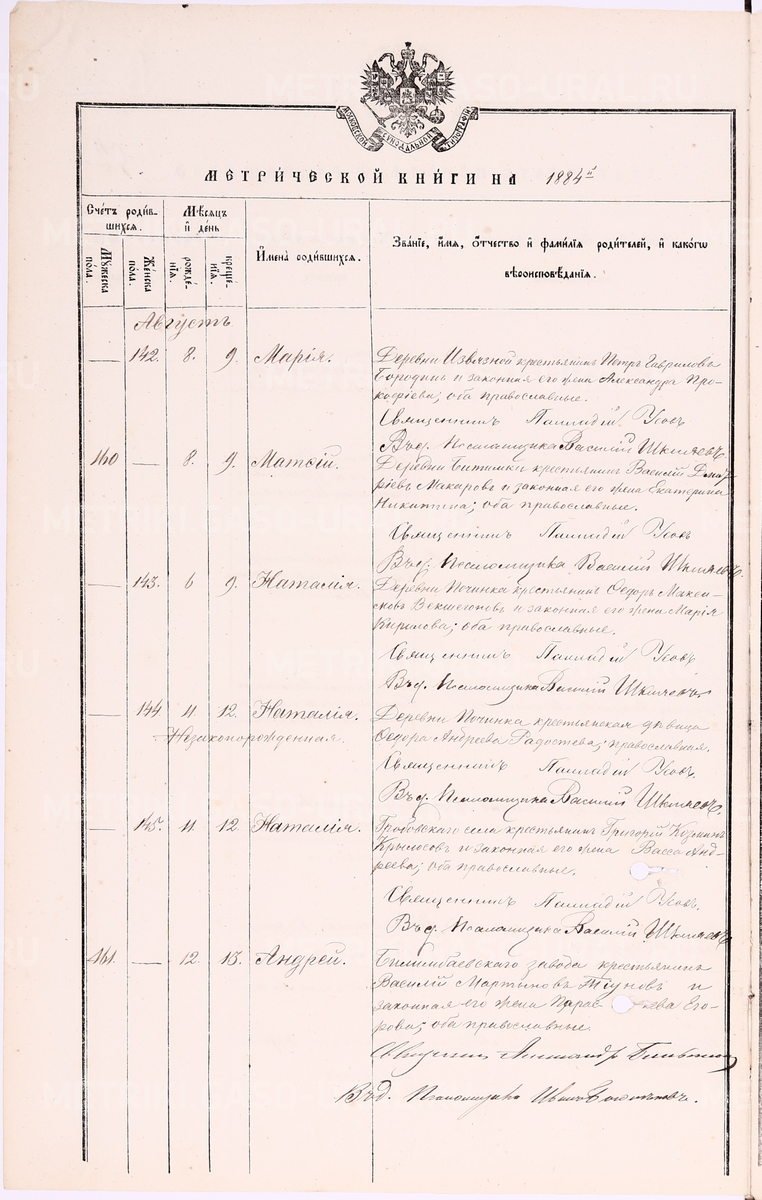 МОСКОВСКОЙ СѴНОДАЛЬНОЙ ТИПОГРАФІИ
МЕТРИ́ЧЕСКОЙ КНИ́ГИ НА 1884й
Сче́тъ роди́в-
шихся.
Мꙋ́жеска по́ла.
Же́нска по́ла.
Мѣ́сяцъ
и҆ де́нь
рожде́нїѧ.
креще́нїѧ.
И҆мена̀ роди́вшихсѧ.
Зва́нїе, и҆́мѧ, ѻ҆́тчество и҆ фами́лїѧ роди́телей, и҆ како́гѡ
вѣроисповѣ́данїѧ.
Августъ
— 142. 8. 9. Марія.
Деревни Извязной крестьянинъ Петръ Гавриловъ
Бородинъ и законная его жена Александра Про-
кофіева; оба православные.
Священникъ Палладій Усовъ
Въ д. Псаломщика Василій Шкляевъ
160 — 8. 9. Матѳій.
Деревни Битимки крестьянинъ Василій
Макаровъ и законная его жена Екатерина
Никитина; оба православные.
Священникъ Палладій Усовъ
Въ д. Псаломщика Василій Шкляевъ
— 143. 6 9. Наталія.
Деревни Починка крестьянинъ Ѳедоръ Макси-
мовъ и законная его жена Марія
Кирилова; оба православные.
Священникъ Палладій Усовъ
Въ д. Псаломщика Василій Шкляевъ
— 144 11. 12. Наталія.
Незаконорожденная.
Деревни Починка крестьянская дѣвица
Ѳедора Андреева Радостева; православная.
Священникъ Палладій Усовъ
Въ д. Псаломщика Василій Шкляевъ
— 145. 11. 12 Наталія.
Гробовскаго села крестьянинъ Григорій Козминъ
Крылосовъ и законная его жена Васса Анд-
реева; оба православные.
Священникъ Палладій Усовъ
Въ д. Псаломщика Василій Шкляевъ
161. — 12. 13. Андрей.
Билимбаевскаго завода крестьянинъ
Василій Мартыновъ Тіуновъ и
законная его жена Параскева Его-
рова; оба православные.
Священникъ Александръ
Въ д. Псаломщика Иванъ